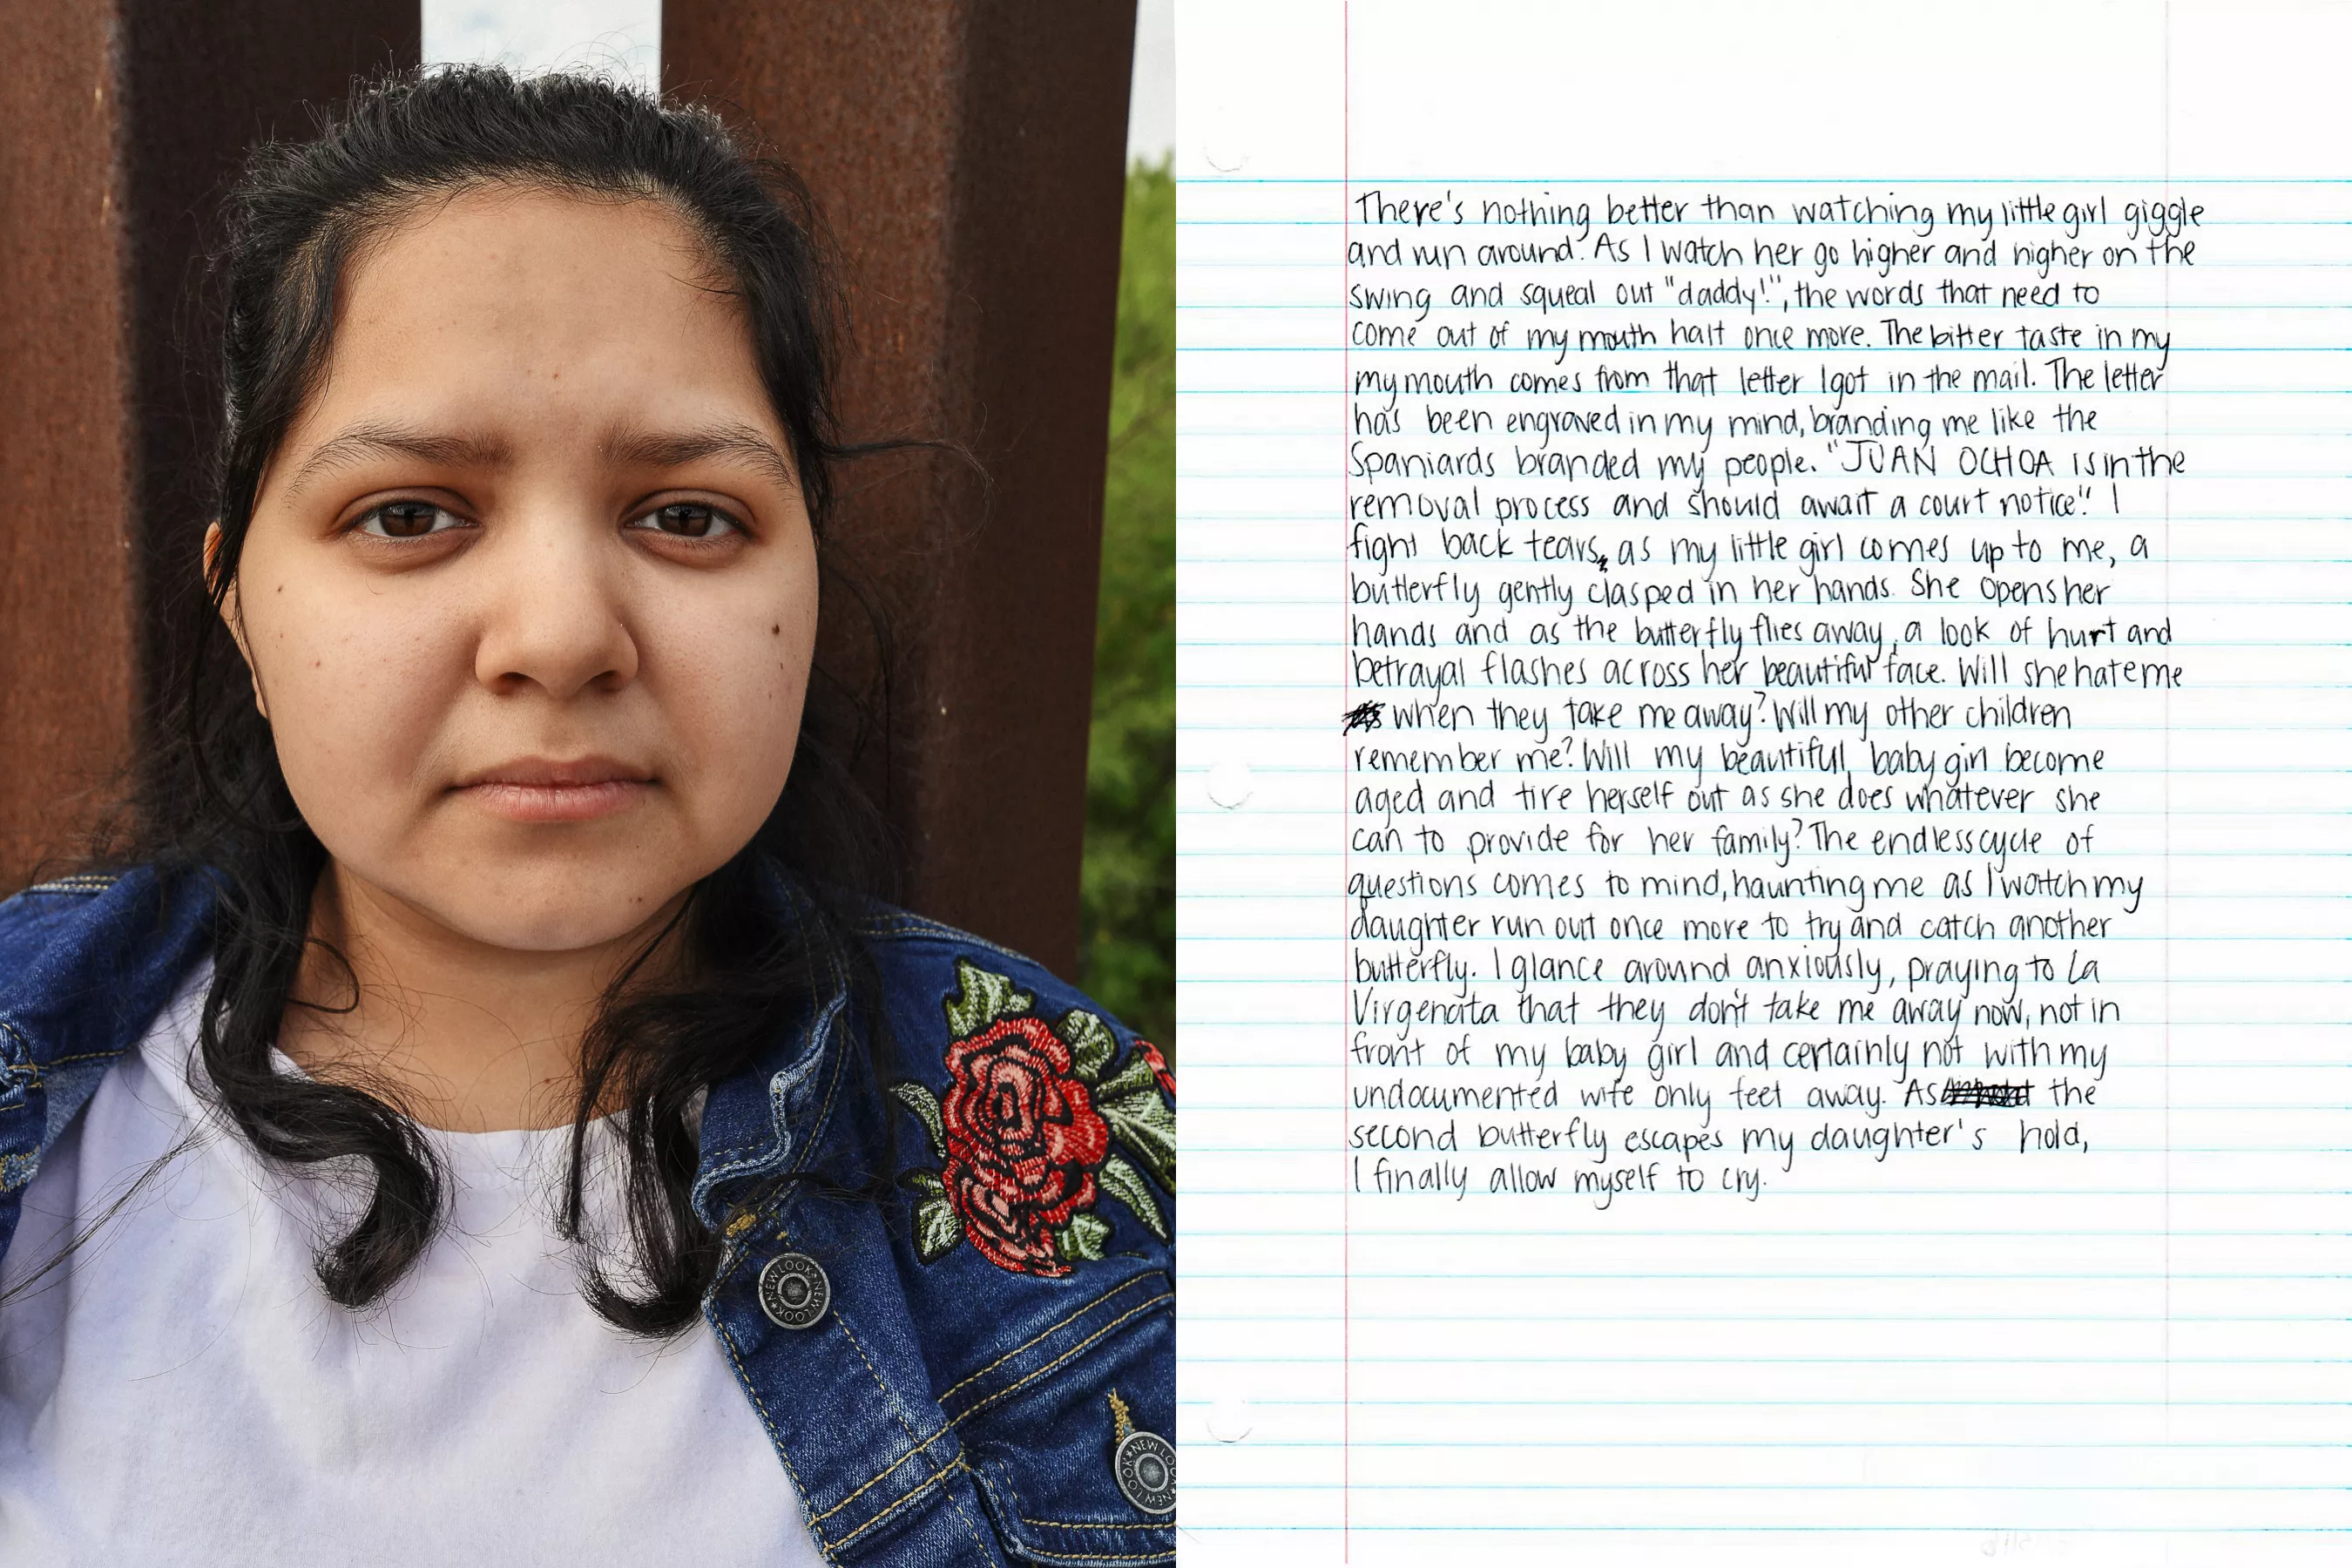 There's nothing better than watching my little girl giggle
and run around. As I watch her go higher and higher on the
swing and squeal out "daddy!", the words that need to
come out of my mouth halt once more. The bitter taste in my
my mouth comes from that letter I got in the mail. The letter
has been engraved in my mind, branding me like the
Spaniards branded my people. "JUAN OCHOA is in the
removal process and should await a court notice." I
fight back tears, as my little girl comes up to me, a
butterfly gently clasped in her hands. She opens her
hands and as the butterfly flies away, a look of hurt and
betrayal flashes across her beautiful face. Will she hate me
when they take me away? Will my other children
remember me? Will my beautiful, baby girl become
aged and tire herself out as she does whatever she
can to provide for her family? The endless cycle of
questions comes to mind, haunting me as I watch my
daughter run out once more to try and catch another
butterfly. I glance around anxiously, praying to La
Virgencita that they don't take me away now, not in
front of my baby girl and certainly not with my
undocumented wife only feet away. As the
second butterfly escapes my daughter's hold,
I finally allow myself to cry.
NEW LOOK NEW LOOK
NEW LOOK NEW LOOK